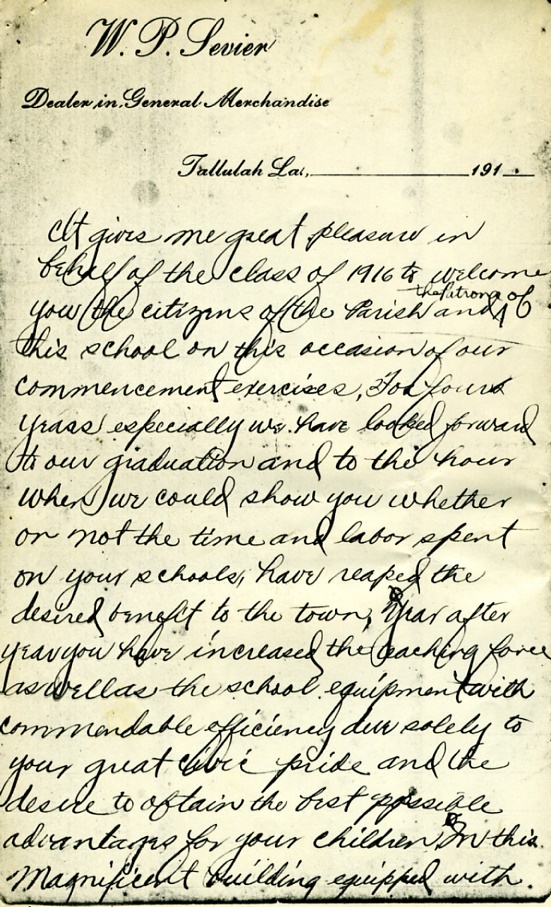 W. P. Sevier
Dealer in General Merchandise
Tallulah La., 191
It gives me great pleasure in
behalf of the class of 1916 to welcome
you the citizens of the Parish and the Patrons of
this school on this occasion of our
commencement exercises, For four
years especially we have looked forward
to our graduation and to the hour
when we could show you whether
or not the time and labor spent
on your schools, have reaped the
desired benefit to the town, Year after
year you have increased the teaching force
as well as the school equipment with
commendable efficiency due solely to
your great civic pride and the
desire to obtain the best possible
advantages for your children In this
Magnificent building equipped with.